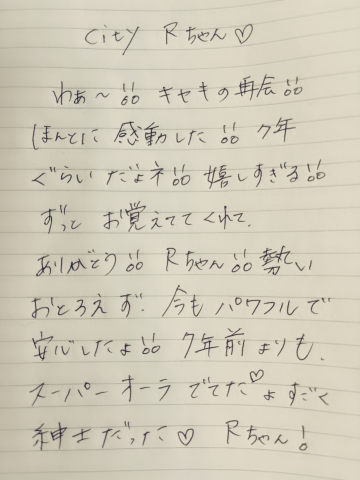 city Rちゃん♡
わぁ〜!! キセキの再会!!
ほんとに 感動した!! 7年
ぐらい だよネ!! 嬉しすぎる!!
ずっと お覚えてて くれて.
ありがとう!! Rちゃん!! 勢い
おとろえ ず. 今も パワフル で
安心したよ!! 7年前 よりも.
スーパー オーラ でてた♡よ すごく
紳士だった♡ Rちゃん!